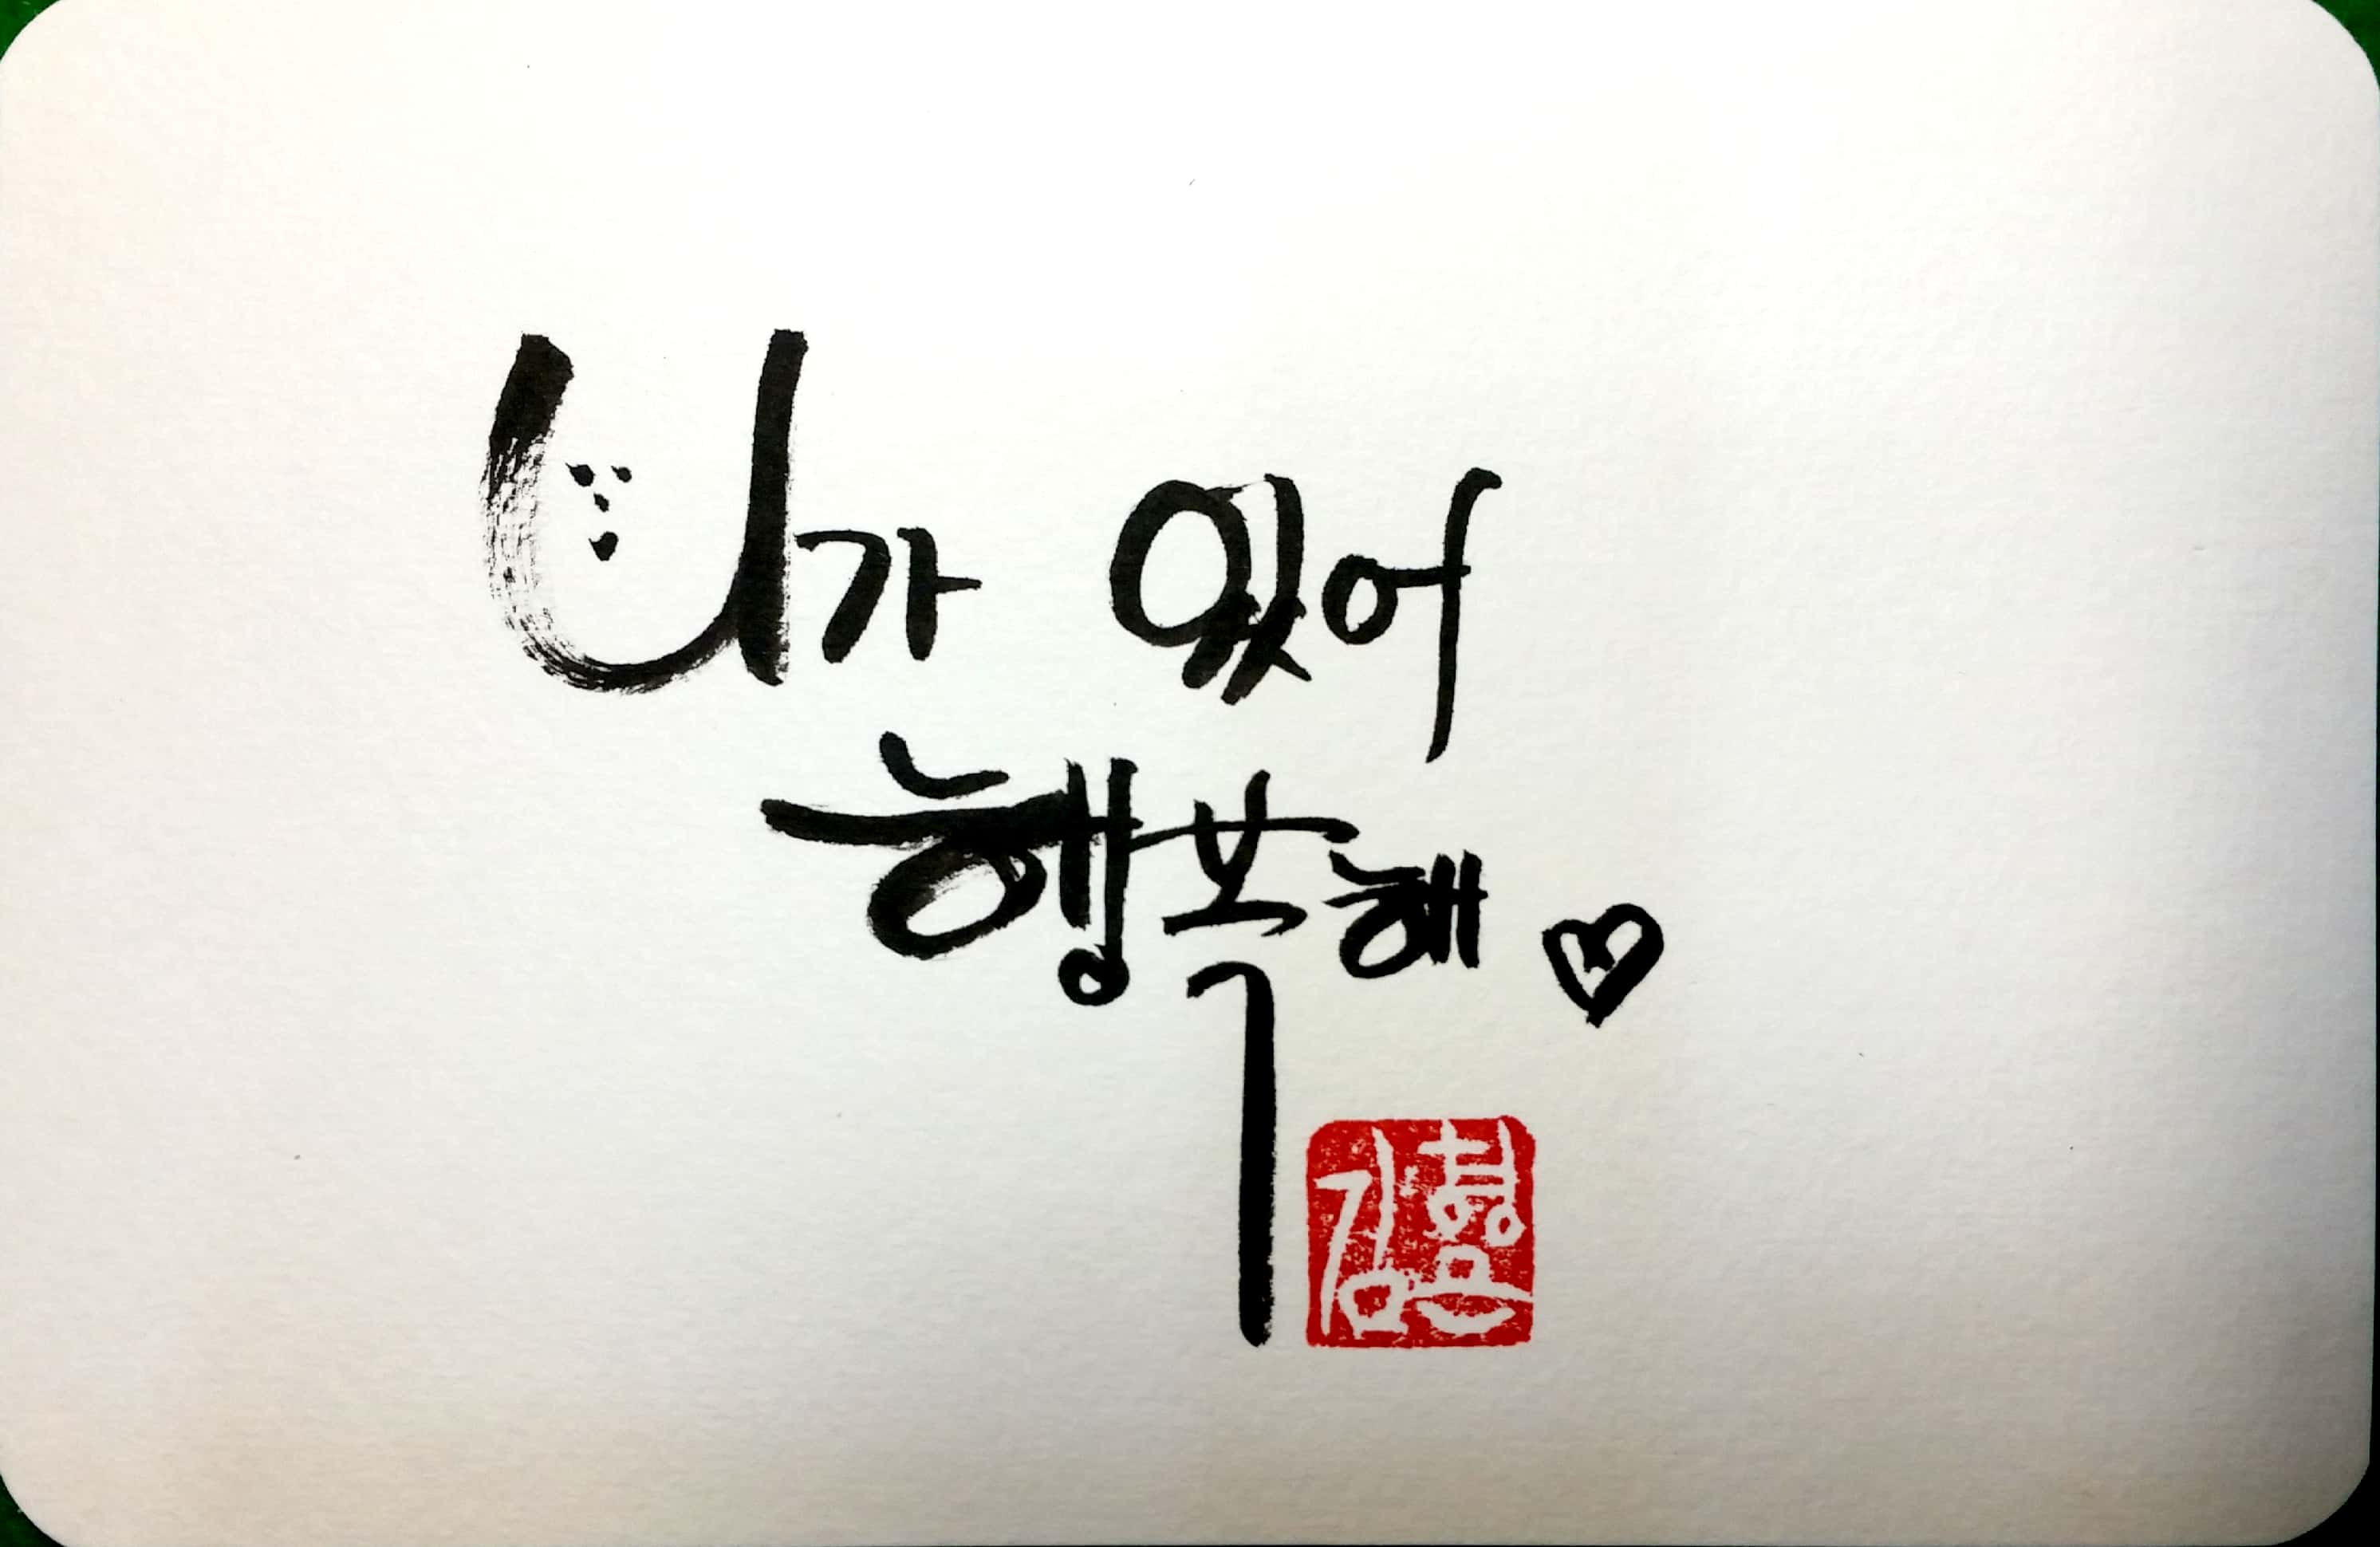 니가 있어
행복해♡
김형은